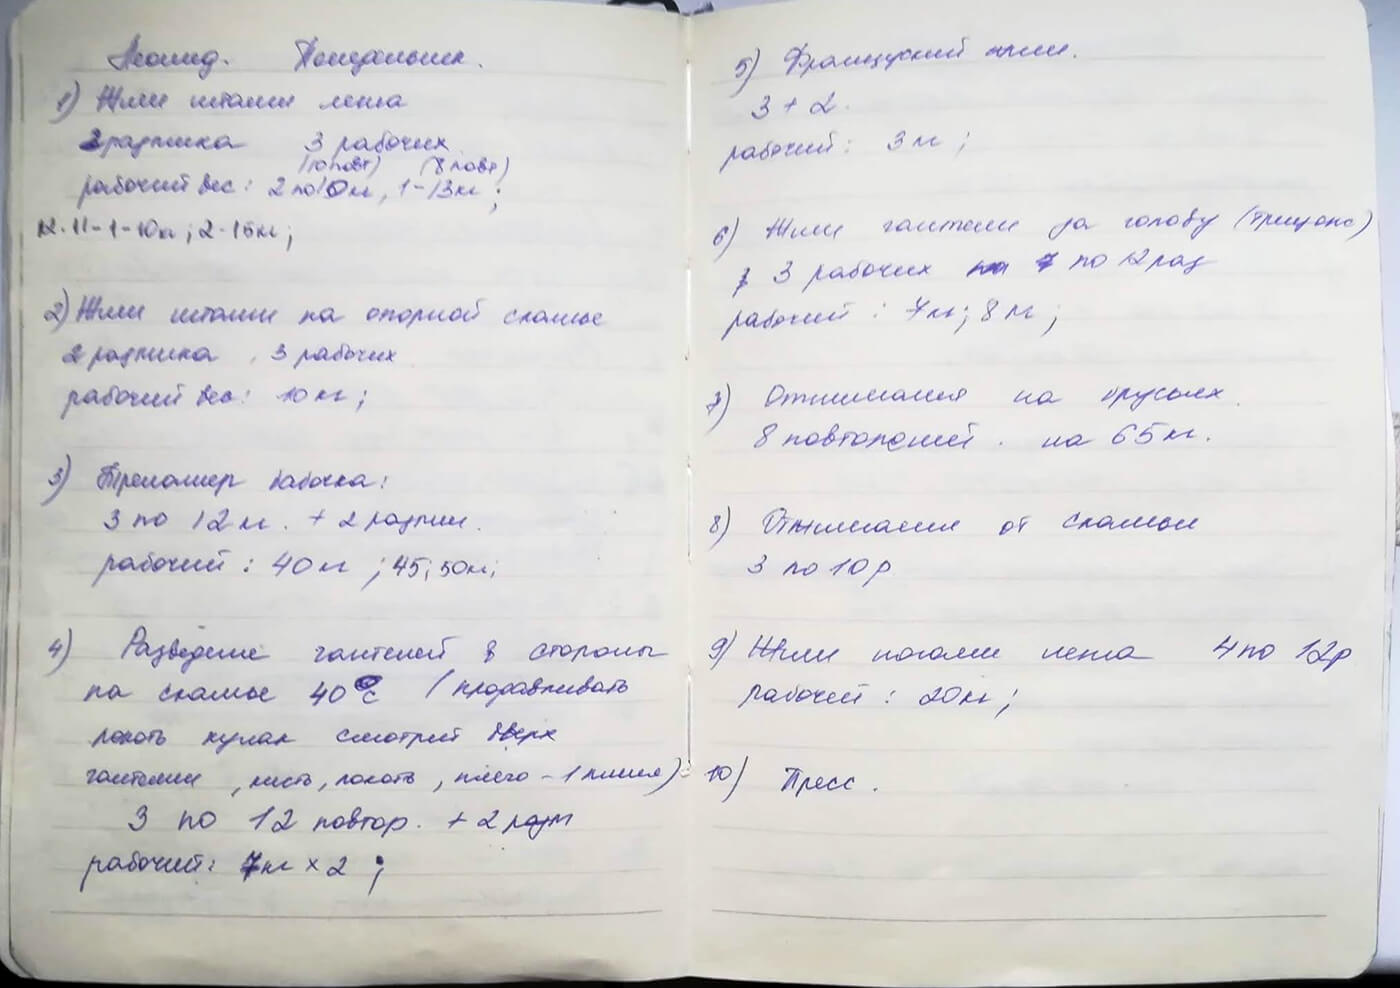 Леонид. Понедельник.
1) Жим штанги лежа
2 разминка 3 рабочих
(10 повт) (8 повт)
рабочий вес: 2 по 10кг, 1-13кг;
12.11-1-10кг; 2-15кг;
2) Жим штанги на опорной скамье
2 разминка, 3 рабочих
рабочий вес: 10кг;
3) Тренажер бабочка:
3 по 12 кг. + 2 размин.
рабочий: 40кг; 45; 50кг;
4) Разведение гантелей в стороны
на скамье 40°С (продавливать
локоть кулак смотрит вверх
гантели, кисть, локоть, плечо - 1 линия)
3 по 12 повтор. + 2 разм
рабочий: 7кг х 2;
5) Французский жим.
3 + 2.
рабочий: 3кг;
6) Жим гантели за голову (трицепс)
3 рабочих по 12 раз
рабочий: 7кг; 8кг;
7) Отжимания на брусьях.
8 повторений. на 65кг.
8) Отжимание от скамьи
3 по 10р
9) Жим ногами лежа 4 по 12р
рабочей: 20кг;
10) Пресс.